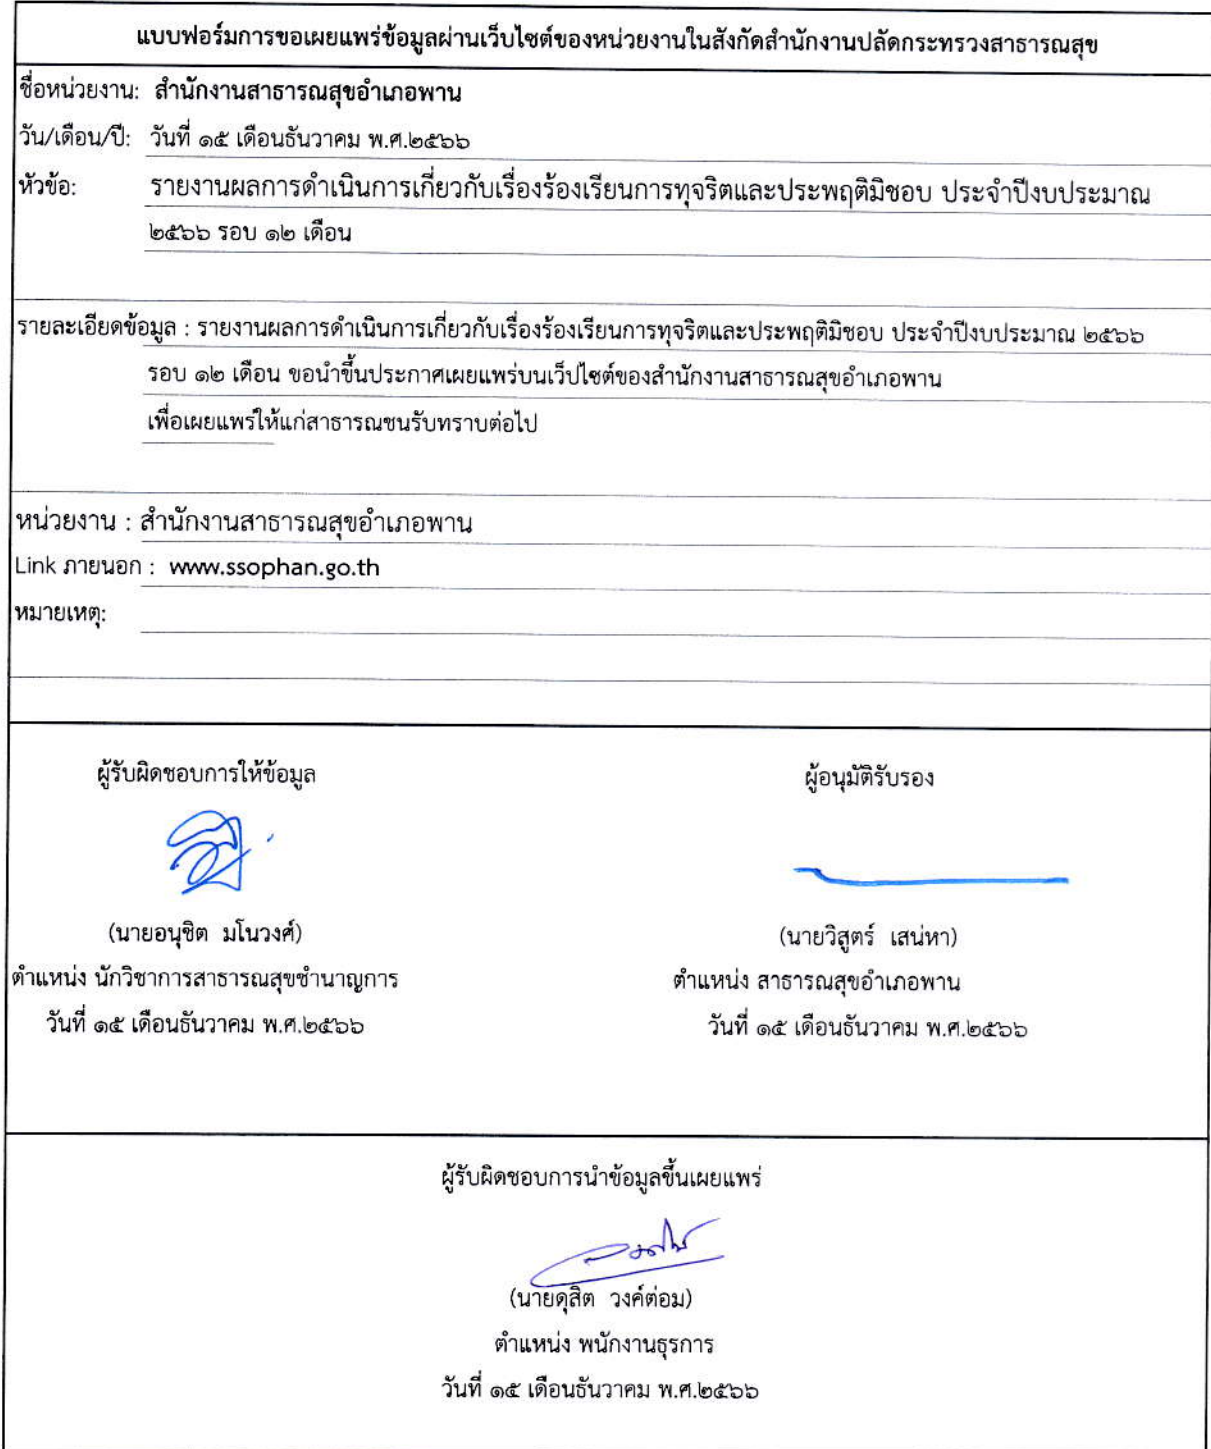 แบบฟอร์มการขอเผยแพร่ข้อมูลผ่านเว็บไซต์ของหน่วยงานในสังกัดสำนักงานปลัดกระทรวงสาธารณสุข
ชื่อหน่วยงาน: สำนักงานสาธารณสุขอำเภอพาน
วัน/เดือน/ปี: วันที่ ๑๕ เดือนธันวาคม พ.ศ.๒๕๖๖
หัวข้อ: รายงานผลการดำเนินการเกี่ยวกับเรื่องร้องเรียนการทุจริตและประพฤติมิชอบ ประจำปีงบประมาณ
๒๕๖๖ รอบ ๑๒ เดือน
รายละเอียดข้อมูล : รายงานผลการดำเนินการเกี่ยวกับเรื่องร้องเรียนการทุจริตและประพฤติมิชอบ ประจำปีงบประมาณ ๒๕๖๖
รอบ ๑๒ เดือน ขอนำขึ้นประกาศเผยแพร่บนเว็ปไซต์ของสำนักงานสาธารณสุขอำเภอพาน
เพื่อเผยแพร่ให้แก่สาธารณชนรับทราบต่อไป
หน่วยงาน : สำนักงานสาธารณสุขอำเภอพาน
Link ภายนอก : www.ssophan.go.th
หมายเหตุ:
ผู้รับผิดชอบการให้ข้อมูล
(นายอนุชิต มโนวงศ์)
ตำแหน่ง นักวิชาการสาธารณสุขชำนาญการ
วันที่ ๑๕ เดือนธันวาคม พ.ศ.๒๕๖๖
ผู้อนุมัติรับรอง
(นายวิสูตร์ เสน่หา)
ตำแหน่ง สาธารณสุขอำเภอพาน
วันที่ ๑๕ เดือนธันวาคม พ.ศ.๒๕๖๖
ผู้รับผิดชอบการนำข้อมูลขึ้นเผยแพร่
(นายดุสิต วงค์ต่อม)
ตำแหน่ง พนักงานธุรการ
วันที่ ๑๕ เดือนธันวาคม พ.ศ.๒๕๖๖